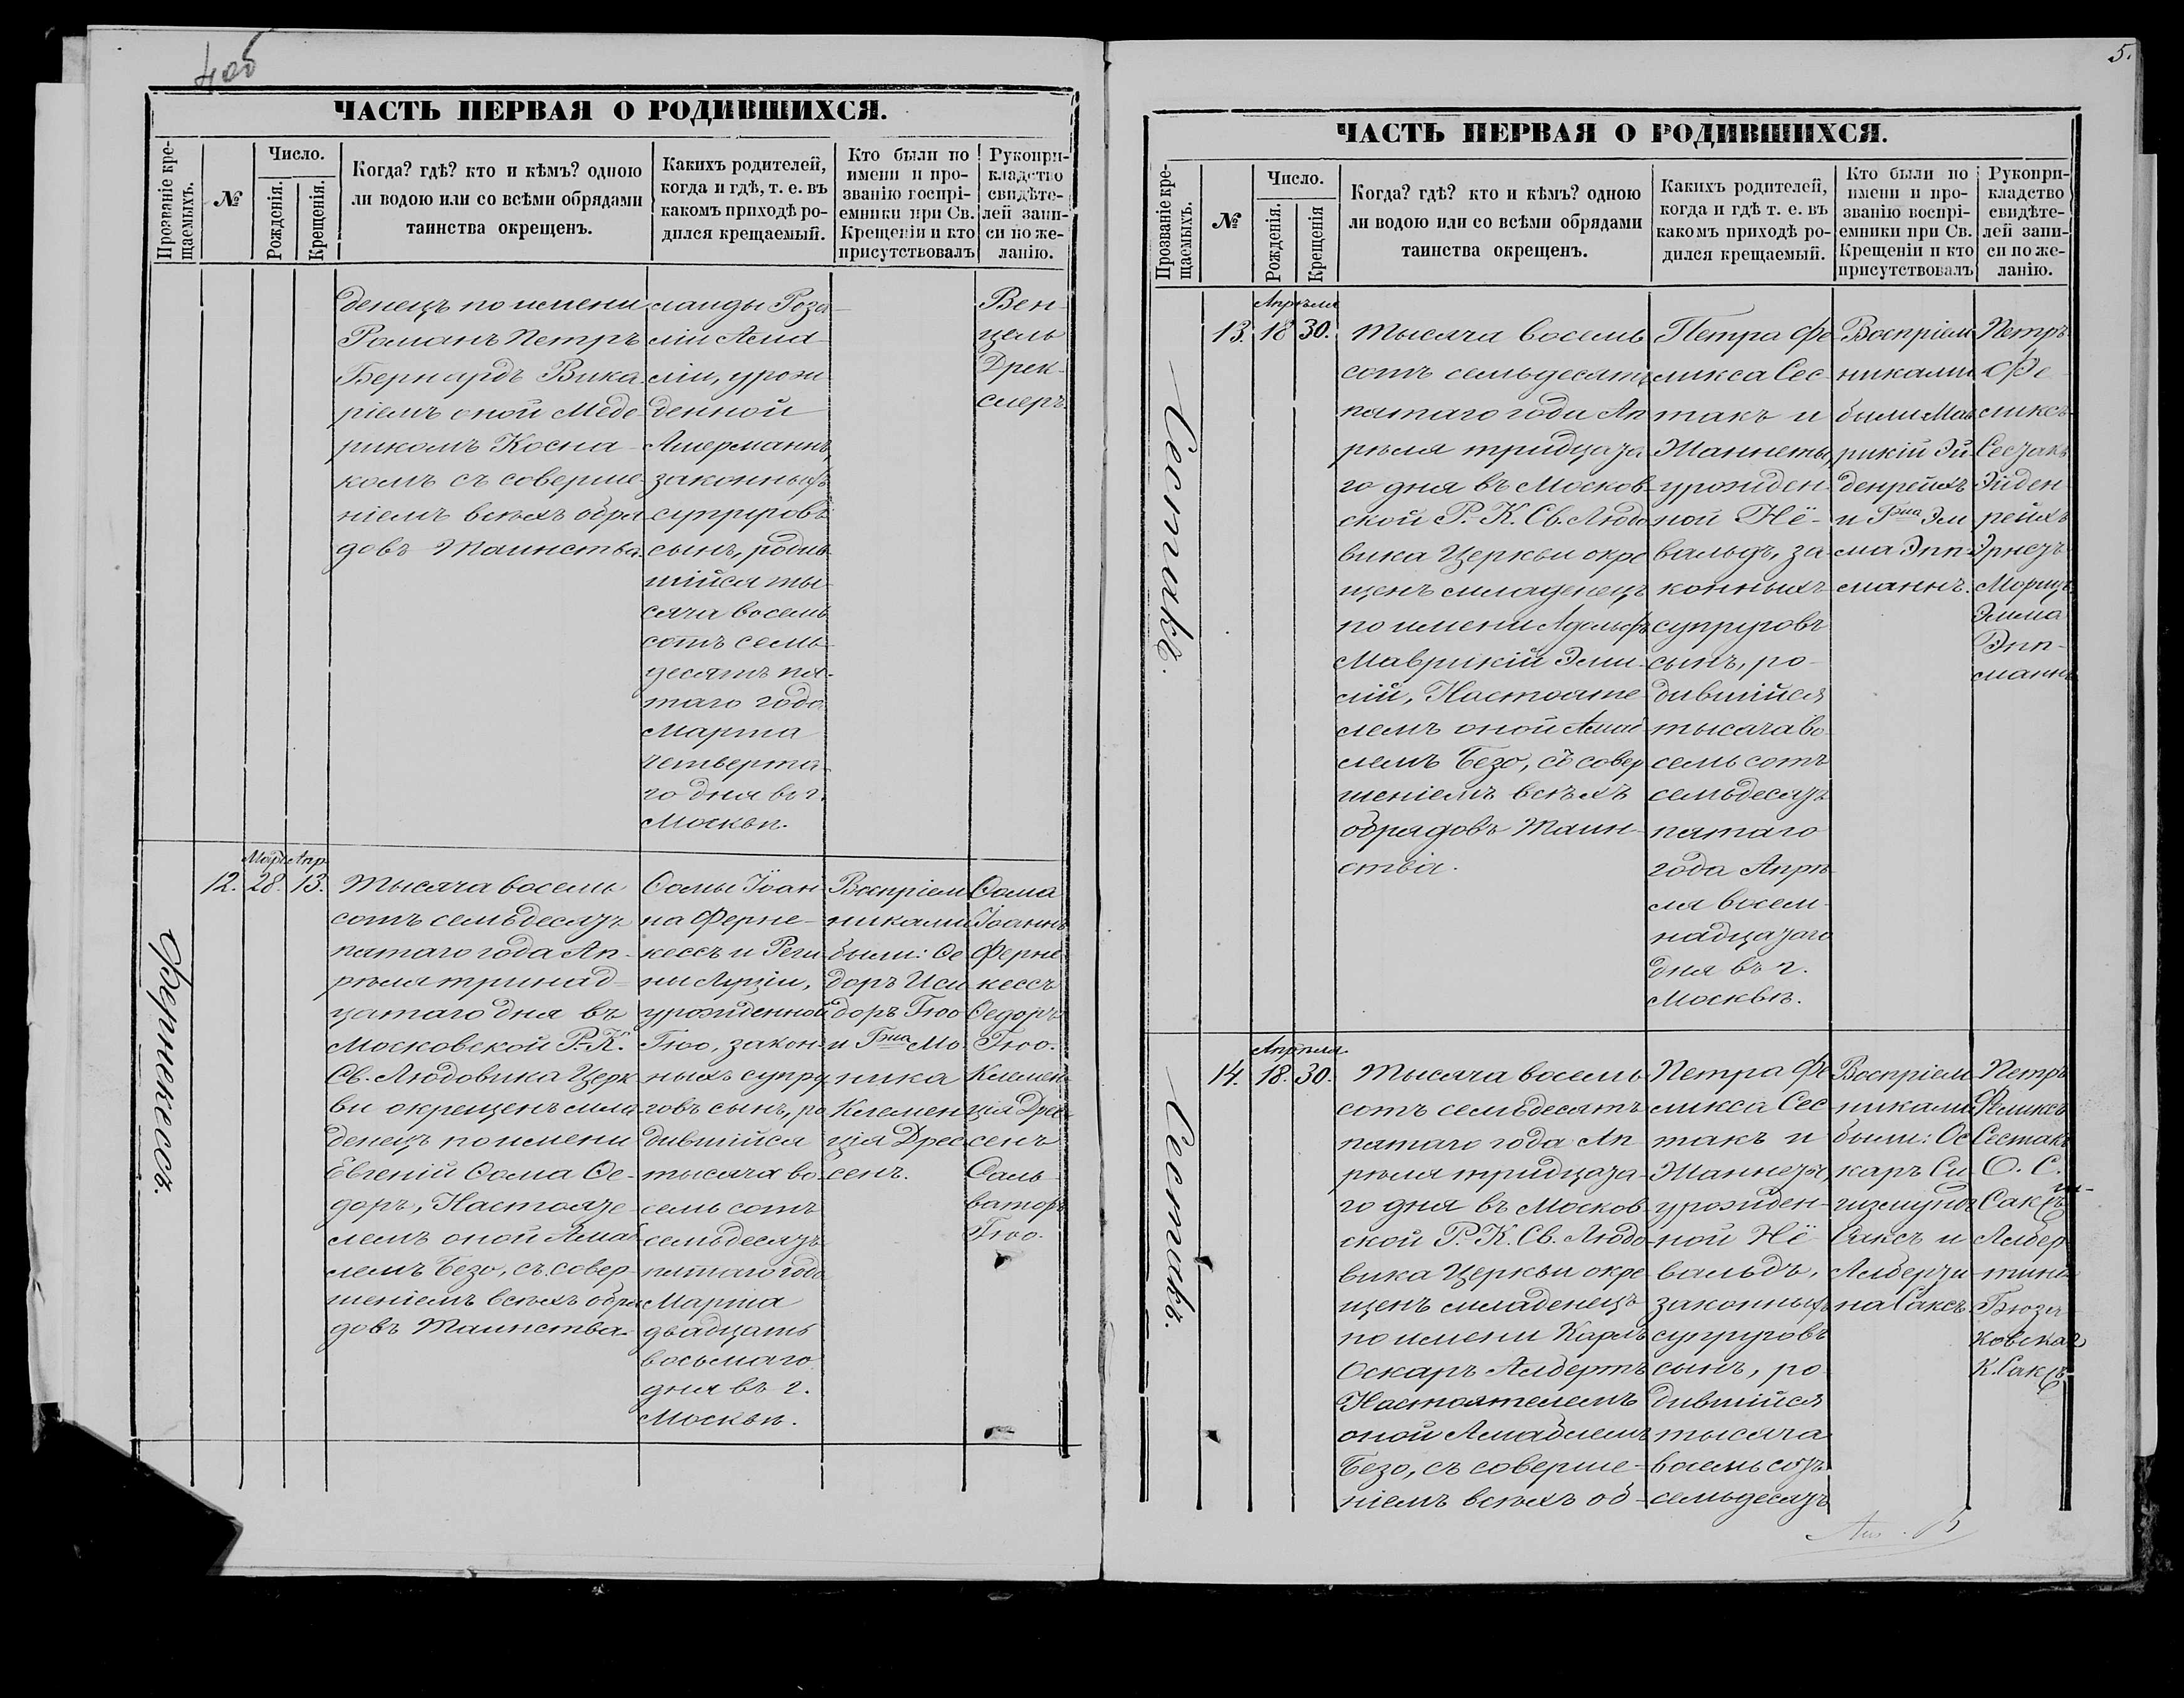 4об
ЧАСТЬ ПЕРВАЯ О РОДИВШИХСЯ.
Прозваніе кре-
щаемыхъ.
№
Число.
Рожденія.
Крещенія.
Когда? гдѣ? кто и кѣмъ? одною
ли водою или со всѣми обрядами
таинства окрещенъ.
Какихъ родителей,
когда и гдѣ, т. е. въ
какомъ приходѣ ро-
дился крещаемый.
Кто были по
имени и про-
званію воспрі-
емники при Св.
Крещеніи и кто
присутствовалъ
Рукопри-
кладство
свидѣте-
лей запи-
си по же-
ланію.
денецъ по имени
Романъ Петръ
Бернардъ Вика-
ріемъ оной Меде-
рикомъ Косна-
комъ съ соверше-
ніемъ всѣхъ обря-
довъ Таинства.
ланды Роза-
ліи Ама-
ліи, урож
денной
Амерманнъ,
законныхъ
супруговъ
сынъ, родив-
шійся ты-
сяча восемь
сотъ семь-
десятъ пя-
таго года
Марта
четверта-
го дня въ г.
Москвѣ.
Вен-
цель
Дрек-
слеръ
Фернекессъ.
12.
Март
28.
Апр.
13.
Тысяча восемь
сотъ семьдесятъ
пятаго года Ап-
рѣля тринад-
цатаго дня въ
Московской Р. К.
Св. Людовика Церк
ви окрещенъ мла
денецъ по имени
Евгеній Ѳома Ѳе-
доръ, Настояте-
лемъ оной Амаб
лемъ Безо, съ совер-
шеніемъ всѣхъ обря
довъ Таинства.
Ѳомы Іоан-
на Ферне-
кессъ и Реги
ны Луціи,
урожденной
Гюо, закон-
ныхъ супру
говъ сынъ, ро
дившійся
тысяча во-
семь сотъ
семьдесятъ
пятаго года
Марта
двадцать
восьмаго
дня въ г.
Москвѣ.
Воспріем
никами
были: Ѳе
доръ Иси
доръ Гюо
и Гжа Мо-
ника
Клемен
ція Дрес
сенъ.
Ѳома
Іоаннъ
Ферне
кессъ
Ѳедоръ
Гюо.
Клемен
ція Дрес
сенъ
Саль-
ваторъ
Гюо.
5.
ЧАСТЬ ПЕРВАЯ О РОДИВШИХСЯ.
Прозваніе кре-
щаемыхъ.
№
Число.
Рожденія.
Крещенія
Когда? гдѣ? кто и кѣмъ? одною
ли водою или со всѣми обрядами
таинства окрещенъ.
Какихъ родителей,
когда и гдѣ т. е. въ
какомъ приходѣ ро-
дился крещаемый.
Кто были по
имени и про-
званію воспрі-
емники при Св.
Крещеніи и кто
присутствовалъ
Рукопри-
кладство
свидѣте-
лей запи-
си по же-
ланію.
Сестакъ.
Апрѣля
13. 18 30.
Тысяча восемь
сотъ семьдесятъ
пятаго года Ап
рѣля тридцата
го дня въ Москов-
ской Р. К. Св. Людо
вика Церкви окре
щенъ младенецъ
по имени Адольфъ
Маврикій Эми-
лій, Настояте-
лемъ оной Амаб
лемъ Безо, съ совер
шеніемъ всѣхъ
обрядовъ Таин-
ства.
Петра Фе-
ликса Сес-
такъ и
Жаннеты,
урожден-
ной Нё-
вальдъ, за-
конныхъ
супруговъ
сынъ, ро-
дившійся
тысяча во
семь сотъ
семьдесятъ
пятаго
года Апрѣ-
ля восем-
надцатаго
дня въ г.
Москвѣ.
Воспріем
никами
были Мав
рикій Эй-
денрейхъ
и Гжа Эм
ма Эпп-
маннъ.
Петръ
Фе-
ликсъ
Сестакъ
Эйден-
рейхъ
Эрнстъ
Морицъ
Эмма
Эпп-
маннъ
Сестакъ.
Апрѣля
14. 18. 30.
Тысяча восемь
сотъ семьдесятъ
пятаго года Ап-
рѣля тридцата-
го дня въ Москов
ской Р. К. Св. Людо
вика Церкви окре
щенъ младенецъ
по имени Карлъ
Оскаръ Альбертъ
Настоятелемъ
оной Амаблемъ
Безо, съ соверше-
ніемъ всѣхъ об-
Петра Фе
ликса Сес
такъ и
Жаннеты,
урожден-
ной Нё
вальдъ,
законныхъ
супруговъ
сынъ, ро
дившійся
тысяча
восемь сотъ
семьдесятъ
Воспріем
никами
были: Ос
каръ Си
гизмундъ
Саксъ и
Альберти
на Саксъ.
Петръ
Феликсъ
Сестакъ
О. С.
Саксъ
Альбер
тина
Бюта
ковская
К. Саксъ